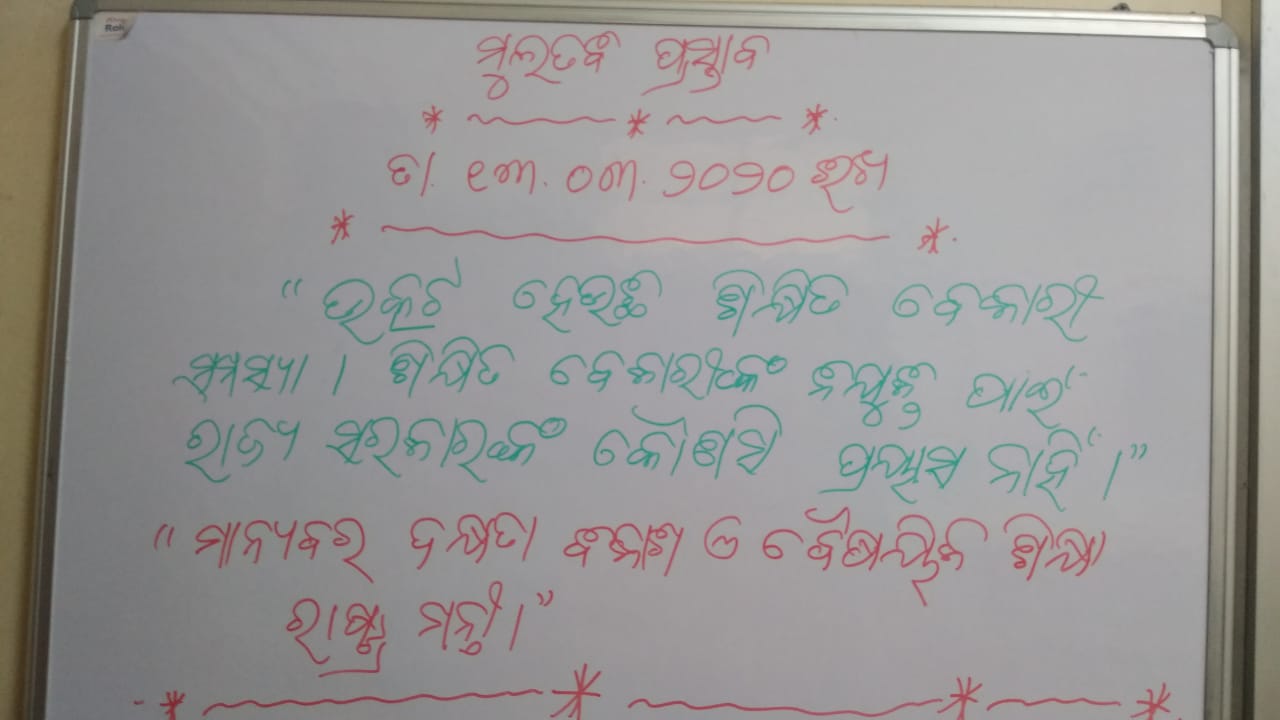 ମୁଲତବୀ ପ୍ରସ୍ତାବ
ତା. ୧୩. ୦୩. ୨୦୨୦ ରିଖ
“ଉତ୍କଟ ହେଉଛି ଶିକ୍ଷିତ ବେକାରୀ
ସମସ୍ୟା । ଶିକ୍ଷିତ ବେକାରୀଙ୍କ ନିଯୁକ୍ତି ପାଇଁ
ରାଜ୍ୟ ସରକାରଙ୍କ କୌଣସି ପ୍ରୟାସ ନାହିଁ ।”
“ମାନ୍ୟବର ଦକ୍ଷତା ବିକାଶ ଓ ବୈଷୟିକ ଶିକ୍ଷା
ରାଷ୍ଟ୍ର ମନ୍ତ୍ରୀ ।”